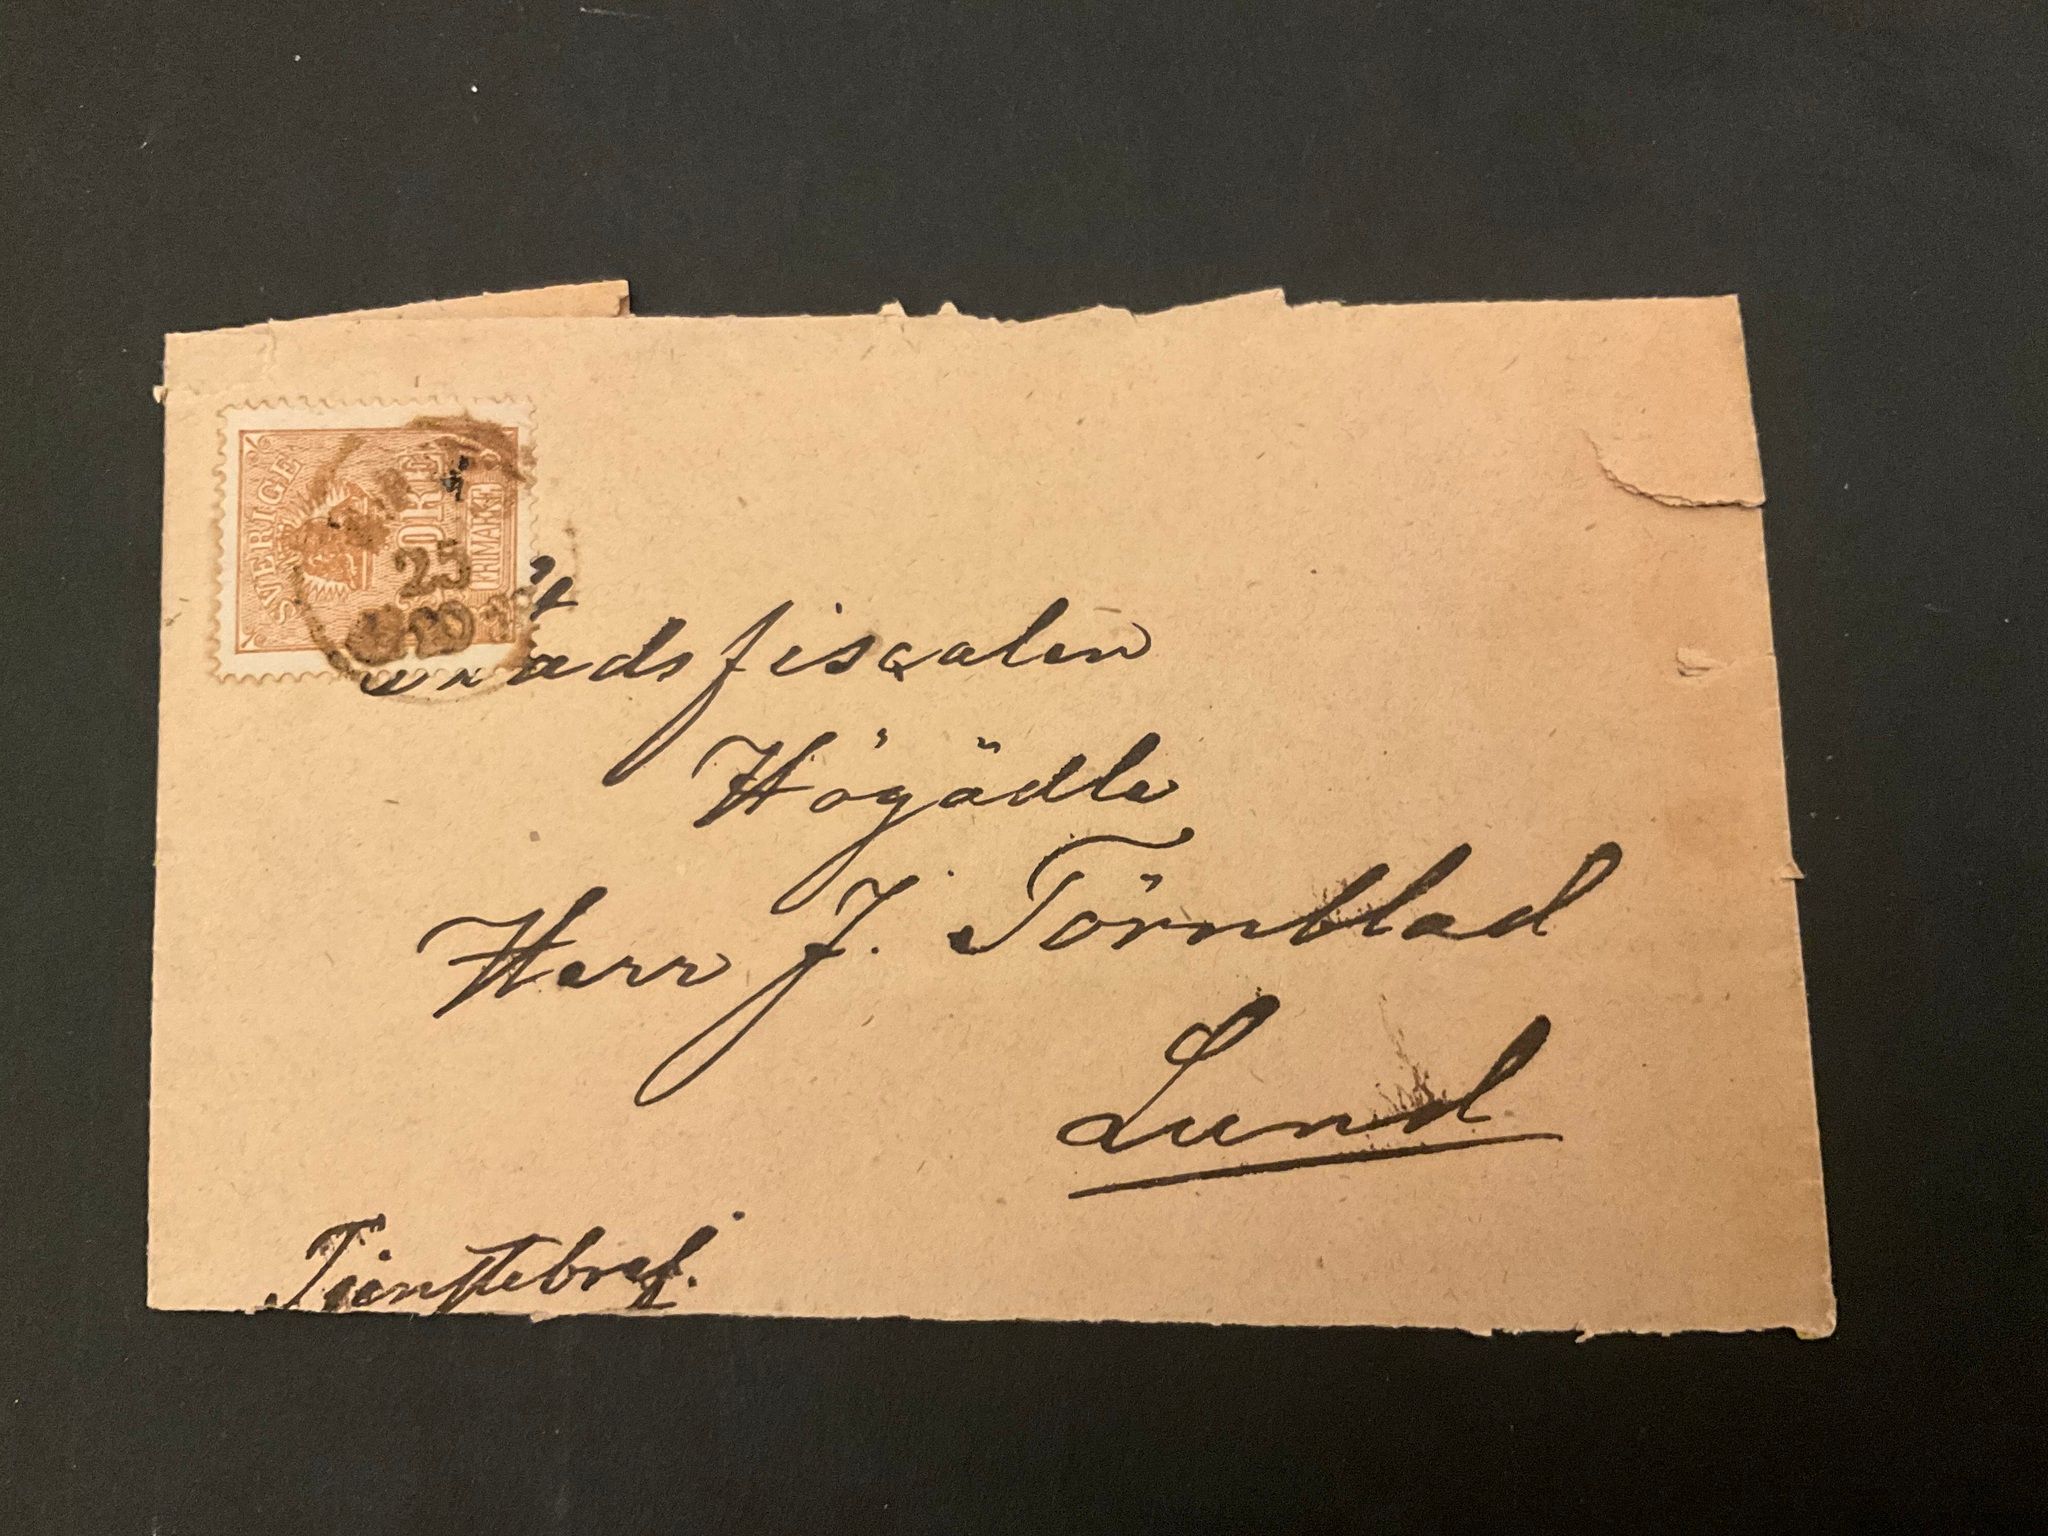 SVERIGE
ÖRE
FRIMÄRKE
25
Högädle
Herr J. Törnblad
Lund
Tjenstebref.